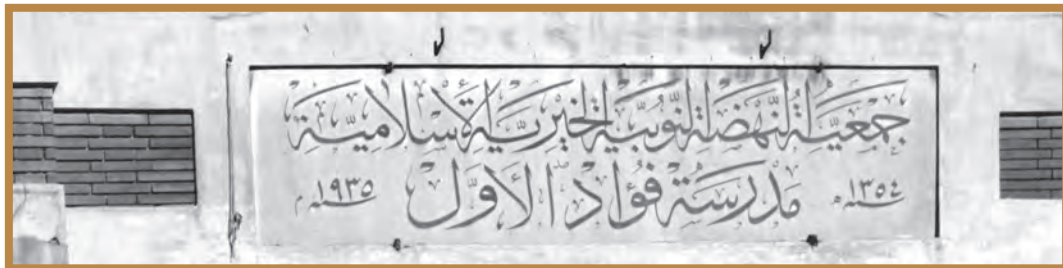 جَمْعِيَّةُ النَّهْضَةِ النُّوبِيَّةِ الخَيْرِيَّةِ الإِسْلَامِيَّةِ
سنة ١٣٥٤ هـ مَدْرَسَةُ فُؤَادِ الأَوَّلِ سنة ١٩٣٥ م